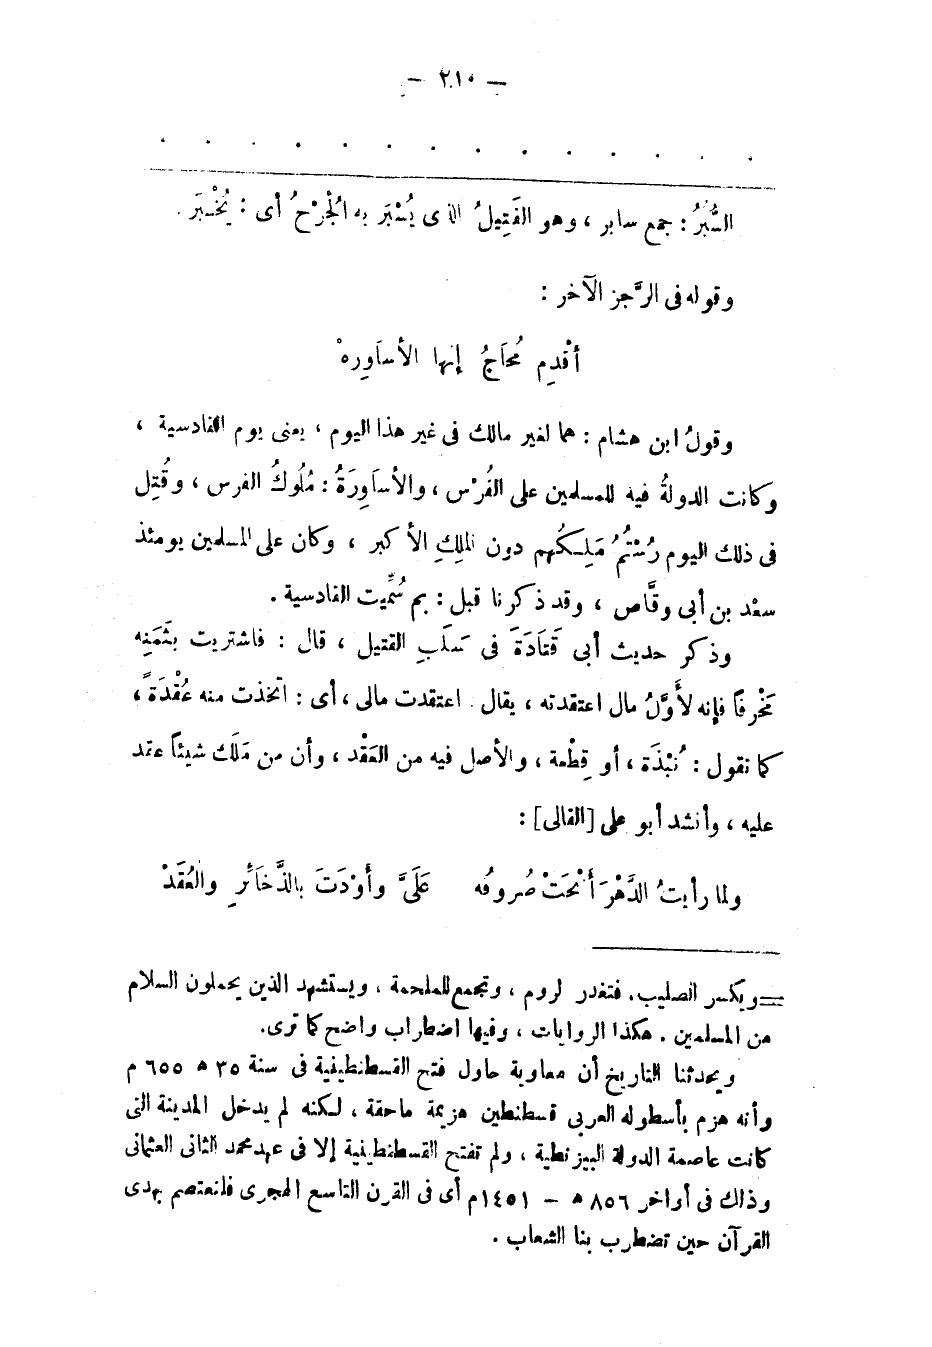 — ٢١٠ —
. . . . . . . . . . . . . .
السُّبُرُ : جمع سابر ، وهو الفَتِيلُ الذى يُسْبَر به الْجُرْحُ أى : يُخْـتبَر .
وقوله فى الرَّجز الآخر :
أقْدِم مُحَاجُ إنها الأسَاوِرهْ
وقولُ ابن هشام : هما لغير مالك فى غير هذا اليوم ، يعنى يوم القادسية ،
وكانت الدولةُ فيه للمسلمين على الفُرْس ، والأسَاوِرَةُ : مُلُوكُ الفرس ، وقُتِل
فى ذلك اليوم رُسْتُمُ مَلِـكُهم دون الملِكِ الأكبر ، وكان على المسلمين يومئذ
سعْد بن أبى وقَّاص ، وقد ذكرنا قبل : بم سُمِّيت القادسية .
وذكر حديث أبى قَتَادَةَ فى سَلَبِ القتيل ، قال : فاشتريت بثَمَنِه
مَخْرفًا فإنه لأَوَّلُ مال اعتقدته ، يقال . اعتقدت مالى ، أى : اتخذت منه عُقْدَةً ،
كما تقول : نُبْذَة ، أو قِطْعة ، والأصل فيه من العَقْد ، وأن من مَلَك شيئاً عقد
عليه ، وأنشد أبو على [القالى] :
ولما رأيتُ الدَّهْرَ أَنْحَتْ صُروفُه علَىَّ وأوْدَتَ بالذَّخَائرِ والعُقَدْ
=ويكسر الصليب. فتغدر لروم ، وتجمع للملحمة ، ويستشهد الذين يحملون السلام
من المسلمين . هكذا الروايات ، وفيها اضطراب واضح كما ترى.
ويحدثنا التاريخ أن معاوية حاول فتح القسطنطينية فى سنة ٣٥ ه ٦٥٥ م
وأنه هزم بأسطوله العربى قسطنطين هزيمة ماحقة ، لـكنه لم يدخل المدينة التى
كانت عاصمة الدولة البيزنطية ، ولم تفتح القسطنطينية إلا فى عهد محمد الثانى العثمانى
وذلك فى أواخر ٨٥٦ ه — ١٤٥١م أى فى القرن التاسع الهجرى فلنعتصم بهدى
القرآن حين تضطرب بنا الشعاب .